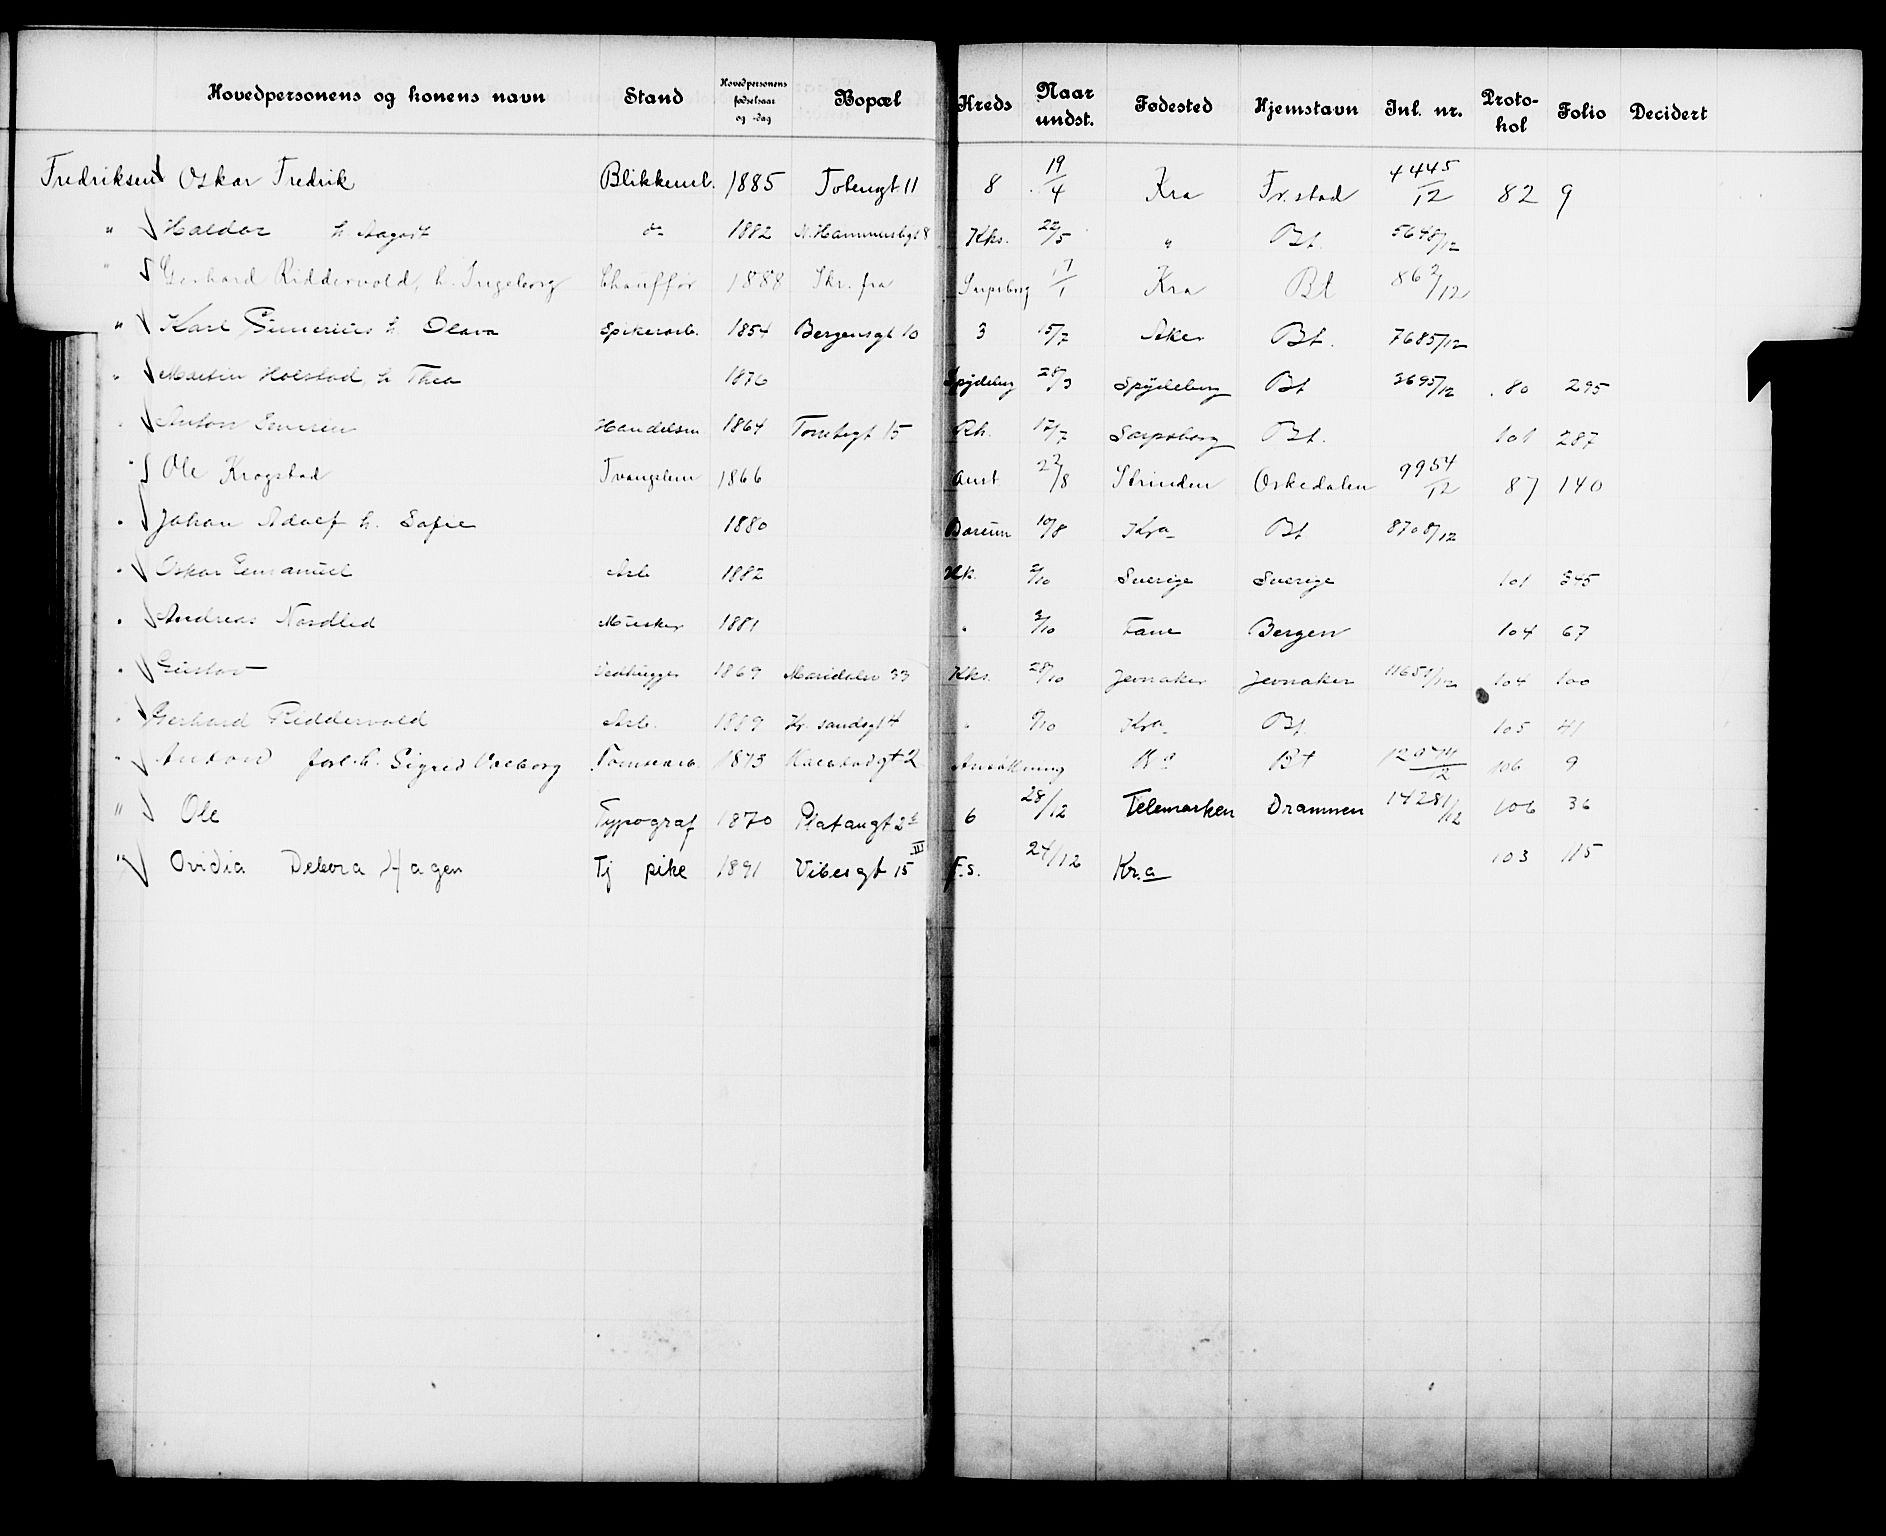 Hovedpersonens og konens navn Stand Hovedpersonens fødselsaar og -dag Bopæl Kreds Naar undst. Fødested Hjemstavn Jnl. nr. Protokol Folio Decidert
Fredriksen Oskar Fredrik Blikkensl. 1885 Totengt 11 8 19/4 Kra Fr.stad 4445/12 82 9
" Haldor h. Aagot do 1882 N. Hammersbgt 8 Kks. 22/5 " Bt. 5648/12
" Gerhard Riddervold, h. Ingeborg Chauffør 1888 Skr. fra Sarpsborg 17/1 Kra Bt 862/12
" Karl h. Olava Spikerarb. 1854 Bergensgt 10 3 15/7 Aker Bt. 7685/12
" Martin Holstad h Thea 1876 Spydeberg 28/3 Spydeberg Bt 3695/12 80 295
" Anton Handelsm 1864 Tomtegt 15 Rh. 17/7 Sarpsborg Bt. 101 287
" Ole Krogstad Tvangslem 1866 Anst 22/8 Strinden Orkedalen 9954/12 87 140
" Johan Adolf h. Sofie 1880 Bærum 10/8 Kra Bt 8708/12
" Oskar Emanuel Arb 1882 Uk. 2/10 Sverige Sverige 101 345
" Andreas Nordlid Musiker 1881 " 2/10 Fane Bergen 104 67
" Gustav Vedhugger 1869 Maridalsv 33 Kks. 28/10 Jevnaker Jevnaker 104 100
" Gerhard Riddervold Arb. 1889 Kr. sandsgt 4 " Kra Bt. 105 41
" Anton forl. h. Sigrid Valborg Tomtearb. 1873 Karlstadgt 2 Ansættning Bt 12074/12 106 9
" Ole Typograf 1870 Platougt 2 6 28/12 Telemarken Drammen 14281/12 106 36
" Ovidia Debora Hagen Tj pike 1891 Vibesgt 15 III F.s. 24/12 Kr.a 103 115